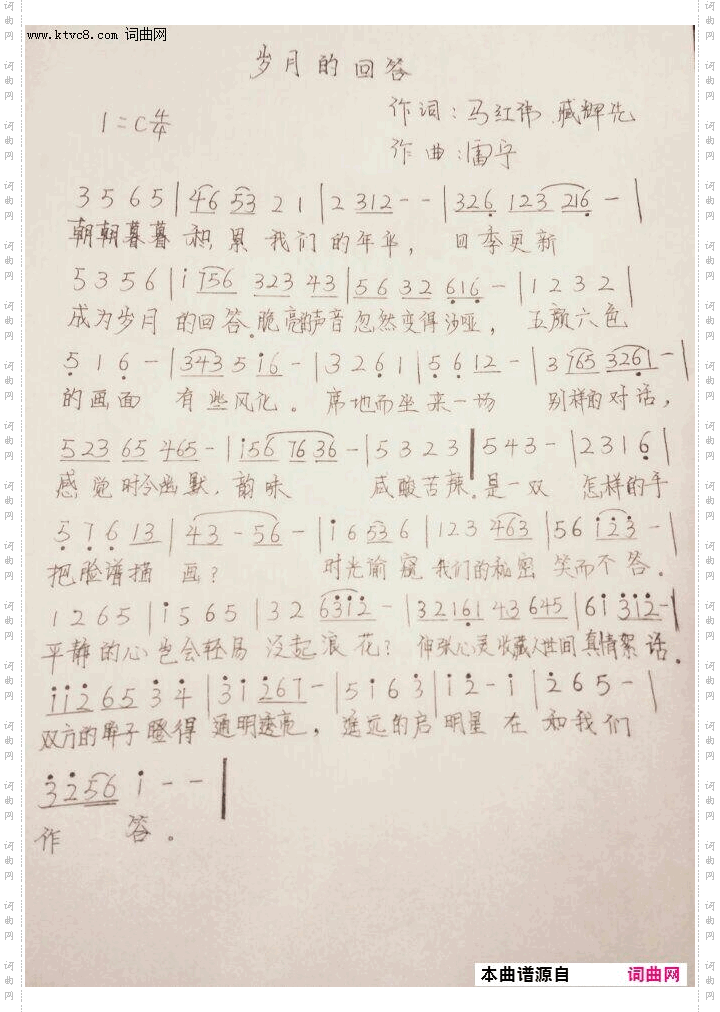 www.ktvc8.com 词曲网
岁月的回答
1=C 4/4
作词:马红伟 臧辉先
作曲:雷宇
3 5 6 5 | 46 53 2 1 | 2 312 - - | 326 123 216 - |
朝朝暮暮 积累我们的年华, 四季更新
5 3 5 6 | i 756 323 43 | 56 32 616 - | 1 2 3 2 |
成为岁月 的回答。脆亮的声音忽然变得沙哑, 五颜六色
5 1 6 - | 343 5 i6 - | 3 2 6 1 | 5 6 12 - | 3 765 3261 - |
的画面 有些风化。 席地而坐 来一场 别样的对话,
523 65 465 - | i56 76 36 - | 5 3 2 3 | 5 4 3 - | 2 3 1 6 |
感觉时令幽默, 韵味 咸酸苦辣。是一双 怎样的手
5 7 6 13 | 43 - 56 - | i 6 53 6 | 1 2 3 463 | 5 6 i23 - |
把脸谱描 画? 时光偷窥 我们的秘密 笑而不答。
1 2 6 5 | i 5 6 5 | 3 2 63i2 - | 32161 43 645 | 6i 3i2 - |
平静的心 也会轻易 泛起浪花? 伸张心灵收藏人世间真情絮话。
ii2 6 5 3 4 | 3 i 267 - | 5 i 6 3 | i 2 - i | 2 6 5 - |
双方的眸子瞪得 通明透亮, 遥远的启明星 在 和我们
3256 i - - |
作 答。
本曲谱源自 词曲网
词曲网